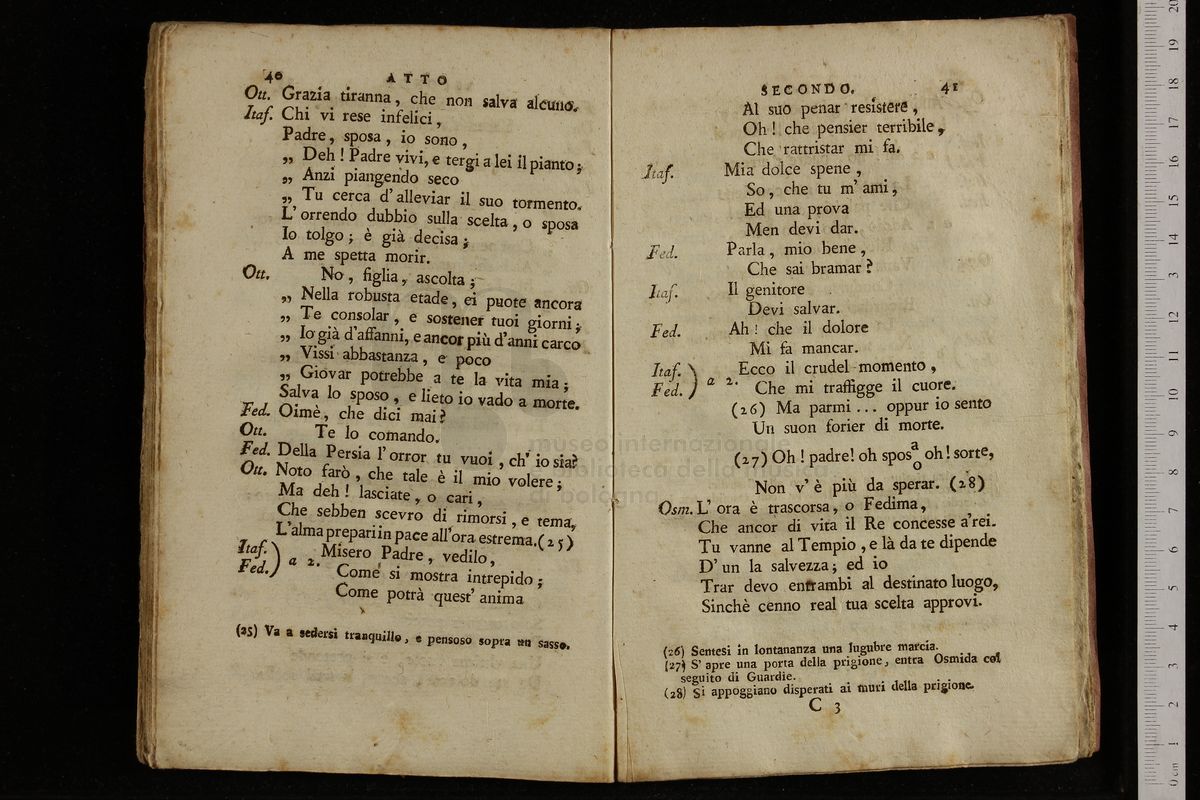 40 ATTO
Ott. Grazia tiranna, che non salva alcuno.
Itaf. Chi vi rese infelici,
Padre, sposa, io sono,
„ Deh! Padre vivi, e tergi a lei il pianto;
„ Anzi piangendo seco
„ Tu cerca d'alleviar il suo tormento.
L'orrendo dubbio sulla scelta, o sposa
Io tolgo; è già decisa;
A me spetta morir.
Ott. No, figlia, ascolta;
„ Nella robusta etade, ei puote ancora
„ Te consolar, e sostener tuoi giorni;
„ Io già d'affanni, e ancor più d'anni carco
„ Vissi abbastanza, e poco
„ Giovar potrebbe a te la vita mia;
Salva lo sposo, e lieto io vado a morte.
Fed. Oimè, che dici mai?
Ott. Te lo comando.
Fed. Della Persia l'orror tu vuoi, ch'io sia?
Ott. Noto farò, che tale è il mio volere;
Ma deh! lasciate, o cari,
Che sebben scevro di rimorsi, e tema,
L'alma prepari in pace all'ora estrema. (25)
Itaf. Fed. ) a 2. Misero Padre, vedilo,
Come si mostra intrepido;
Come potrà quest'anima
(25) Va a sedersi tranquillo, e pensoso sopra un sasso.
SECONDO. 41
Al suo penar resistere,
Oh! che pensier terribile,
Che rattristar mi fa.
Itaf. Mia dolce spene,
So, che tu m'ami,
Ed una prova
Men devi dar.
Fed. Parla, mio bene,
Che sai bramar?
Itaf. Il genitore
Devi salvar.
Fed. Ah! che il dolore
Mi fa mancar.
Itaf. Fed. ) a 2. Ecco il crudel momento,
Che mi traffigge il cuore.
(26) Ma parmi... oppur io sento
Un suon forier di morte.
(27) Oh! padre! oh sposa/o oh! sorte,
Non v'è più da sperar. (28)
Osm. L'ora è trascorsa, o Fedima,
Che ancor di vita il Re concesse a'rei.
Tu vanne al Tempio, e là da te dipende
D'un la salvezza; ed io
Trar devo entrambi al destinato luogo,
Sinchè cenno real tua scelta approvi.
(26) Sentesi in lontananza una lugubre marcia.
(27) S'apre una porta della prigione, entra Osmida col
seguito di Guardie.
(28) Si appoggiano disperati ai muri della prigione.
C 3
museo internazionale
biblioteca della musica
di bologna